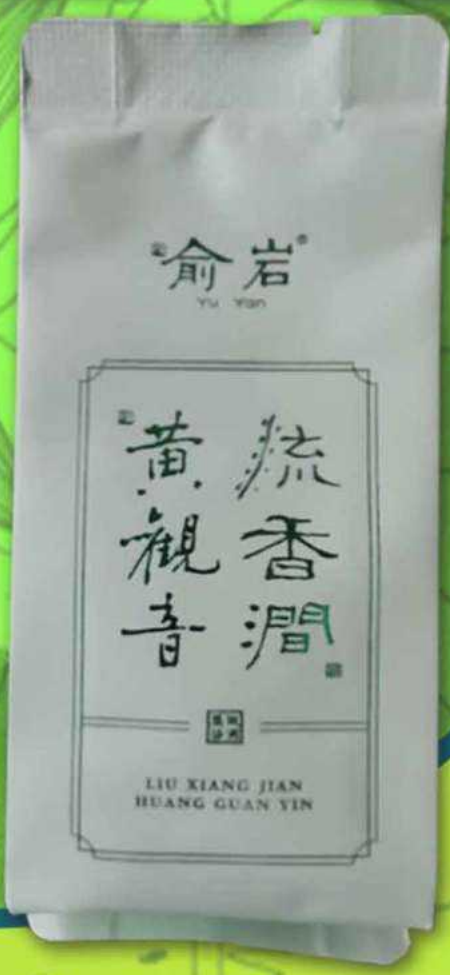 俞岩®
Yu Yan
流香澗
黄觀音
LIU XIANG JIAN
HUANG GUAN YIN